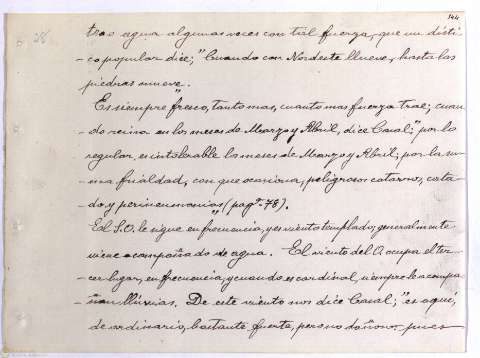 144
trae agua algunas veces con tal fuerza, que un dísti-
-co popular dice; "Cuando con Nordeste llueve, hasta las
piedras mueve".
Es siempre fresco, tanto mas, cuanto mas fuerza trae; cuan-
-do reina en los meses de Marzo y Abril, dice Casal; "por lo
regular, es intolerable los meses de Marzo y Abril; por la su-
-ma frialdad, con que ocasiona, peligrosos catarros, costa-
-do y perineumonias" (pagª-78).
El S.O. le sigue en frecuencia, y es viento templado; generalmente
viene acompañado de agua. El viento del O. ocupa el ter-
-cer lugar, en frecuencia, y cuando es cardinal, siempre le acompa-
-ñan lluvias. De este viento nos dice Casal; "es aquí,
de ordinario, bastante fuerte, pero no dañoso, pues